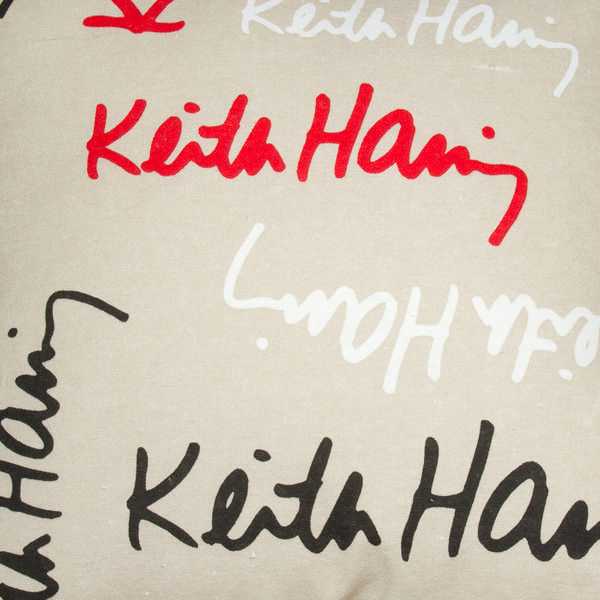 K
Keith Haring
Keith Haring
Keith Haring
th Haring
Keith Har